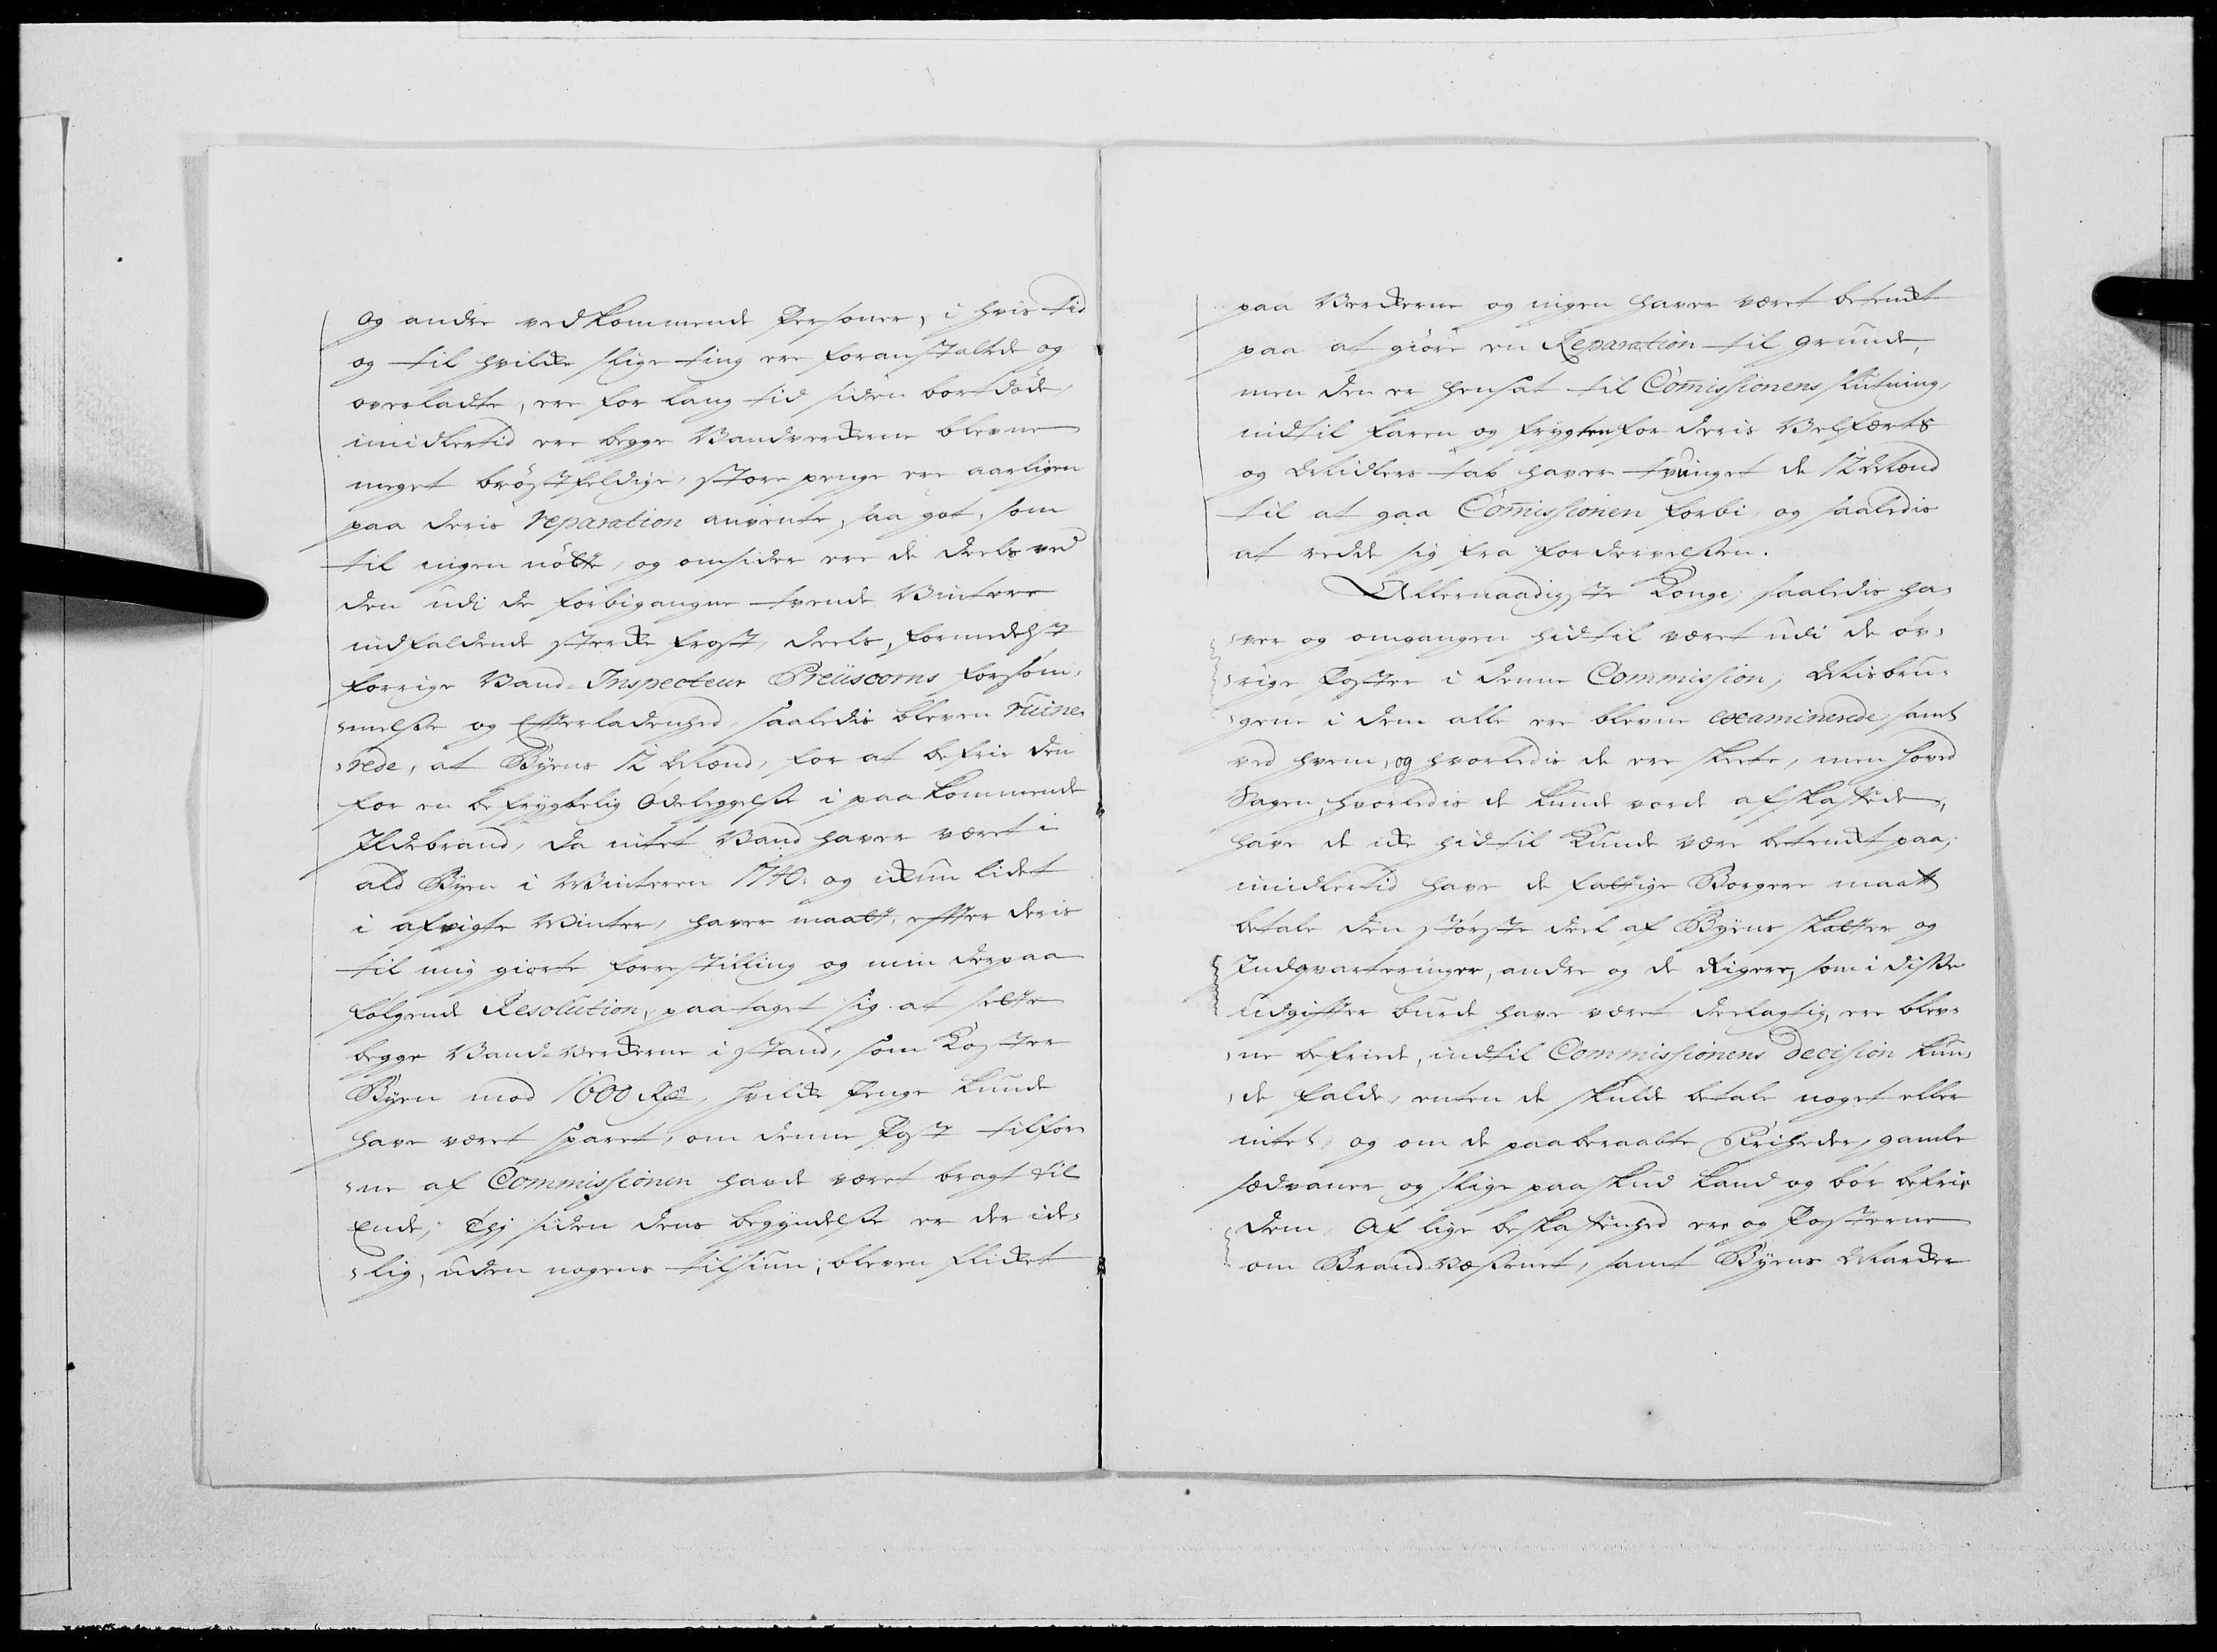 og andre vedkommende Personer, i hvis tid
og til hvilcke slige ting ere foranstaltede og
overladte, ere for lang tid siden bortdöde,
imidlertid ere begge Vandverckerne blevne
meget bröstfeldige, store penge ere aarligen
paa deris reparation anvente, saa got, som
til ingen nötte, og omsider ere de deels ved
den udi de forbigangne tvende Vintere
indfaldende stercke frost, deels, formedelst
forrige Vand-Inspecteur Preüscorns forsöm-
-melse og Efterladenhed, saaledis bleven ruine-
-rede, at Byens 12 Mænd, for at befrie den
for en befrygtelig Ödeleggelse i paakommende
Ildebrand, da intet Vand haver været i
ald Byen i Winteren 1740. og ickun lidet
i afvigte Winter, haver maatt, efter deris
til mig giorte forestilling og min derpaa
fölgende Resolution, paataget sig at sette
begge Vand-Verckerne i stand, som Koster
Byen mod 1600 Rdr, hvilcke Penge kunde
have været sparet, om denne Post tilfor-
-ne af Commissionen havde været bragt til
Ende; thj siden dens begyndelse er der ide-
-lig, uden nogens tilsiun, bleven flicket
paa Verckerne og ingen haver været betenckt
paa at giöre en Reparation til grunde,
men den er hensat til Comissionens slutning,
indtil faren og frygten for deris Velfærts
og Midlers tab haver tvunget de 12 Mænd
til at gaa Comissionen forbi, og saaledis
at redde sig fra fordervelsen.
Allernaadigste Konge, saaledis ha-
-ver og omgangen hidtil været udi de öv-
-rige Poster i denne Commission, Misbru-
-gene i dem alle ere blevne examinerede, samt
ved hvem, og hvorledis de ere skeete, men hoved
Sagen, hvorledis de kunde vorde afskaffede,
have de icke hidtil kunde være betenckt paa;
imidlertid have de fattige Borgere maatt
betale den störste deel af Byens skatter og
Indqvarteringer, andre og de Rigere, som i disse
udgifter burde have været deelagtig, ere blev-
-ne befriede, indtil Commissionens decision kun-
-de falde, enten de skulde betale noget eller
intet, og om de paaberaabte Friheder, gamle
sædvaner og slige paaskud kand og bör befrie
dem. Af lige beskaffenhed ere og Posterne
om Brand-Væsenet, samt Byens Marcker